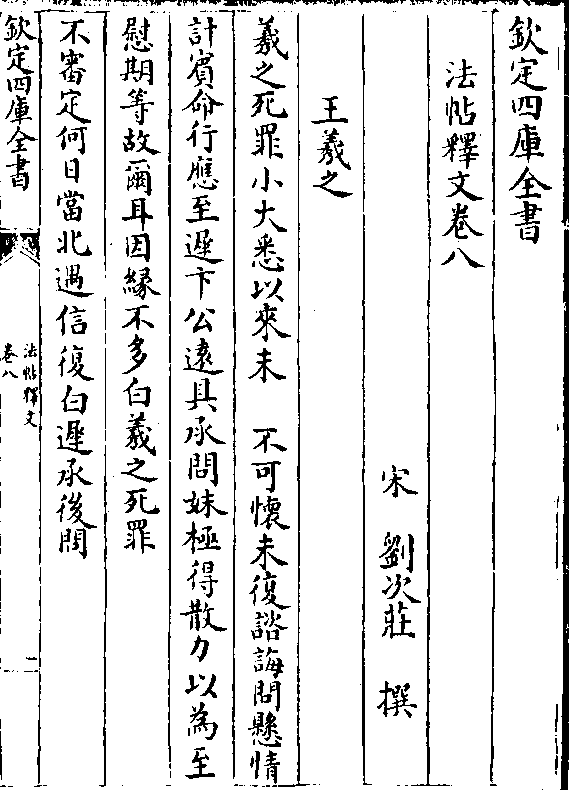 欽定四庫全書
法帖釋文卷八
宋 劉次莊 撰
王羲之
羲之死罪小大悉以來未 不可懷未復諮誨問懸情
計賓命行應至遲卞公遠具承問妹極得散力以為至
慰期等故爾耳因緣不多白羲之死罪
不審定何日當北遇信復白遲承後問
欽定四庫全書
法帖釋文
卷八
一